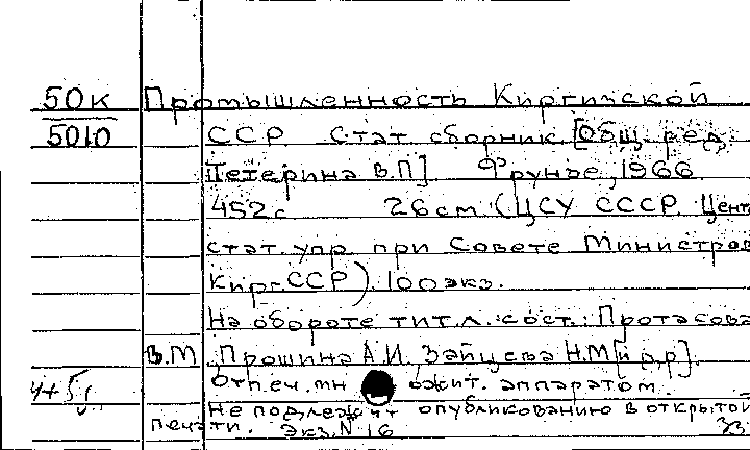 50К Промышленность Киргизской
5010 ССР Стат сборник. [Общ. ред.
Петерина В.П] Фрунзе, 1966.
452с 26см (ЦСУ СССР. Цент
стат упр при Совете Министров
Кирг.ССР). 100экз.
На обороте тит.л. сост.: Протасова
В.М., Прошина А.И, Зайцева Н.М [и др].
Отпеч. мн ожит. аппаратом.
Не подлежит опубликованию в открытой
печати. Экз. N 16 33